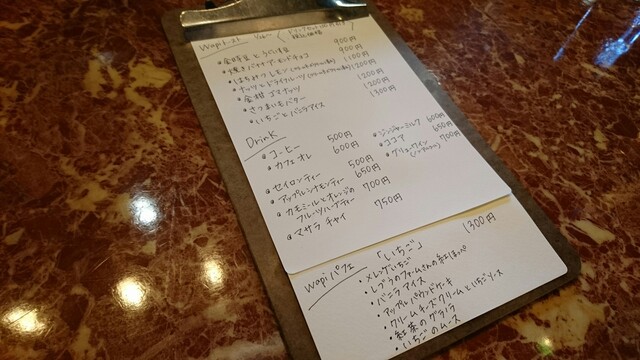 Wapiトースト
900円
900円
・焼きバナナアーモンドチョコ
1100円
・はちみつレモン
1200円
・ナッツとドライフルーツ
1200円
・金柑 ゴマナッツ
1200円
・さつまいもバター
1300円
・いちごとバニラアイス
Drink
・コーヒー 500円
・カフェオレ 600円
・セイロンティー 500円
・アップルシナモンティー 650円
・カモミールとオレンジの
フルーツハーブティー 700円
・マサラチャイ 750円
・ジンジャーミルク 600円
・ココア 650円
・グリューワイン 700円
Wapiパフェ 「いちご」 1300円
・メレンゲいちご
・バニラアイス
・アップルパウンドケーキ
・クリームチーズクリームといちごソース
・紅茶のグラノラ
・いちごのムース